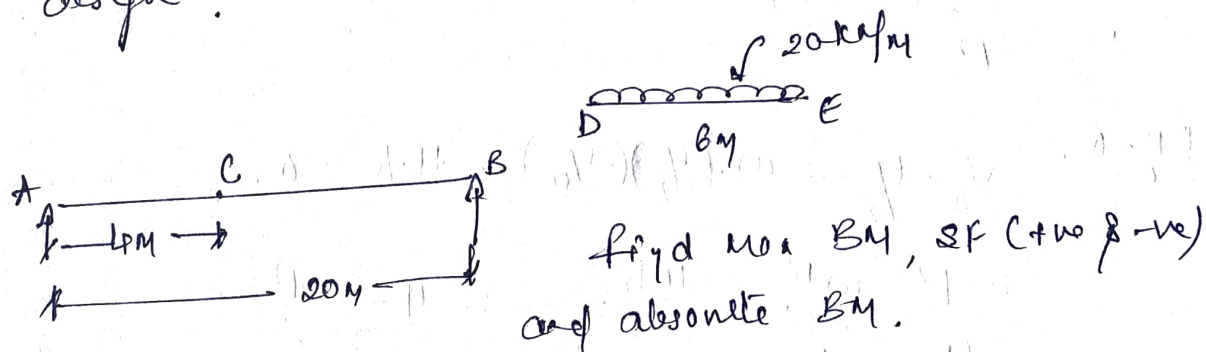 design.
20 kN/M
D E
6M
A C B
4M
20M
find Max BM, SF (+ve & -ve)
and absolute BM.